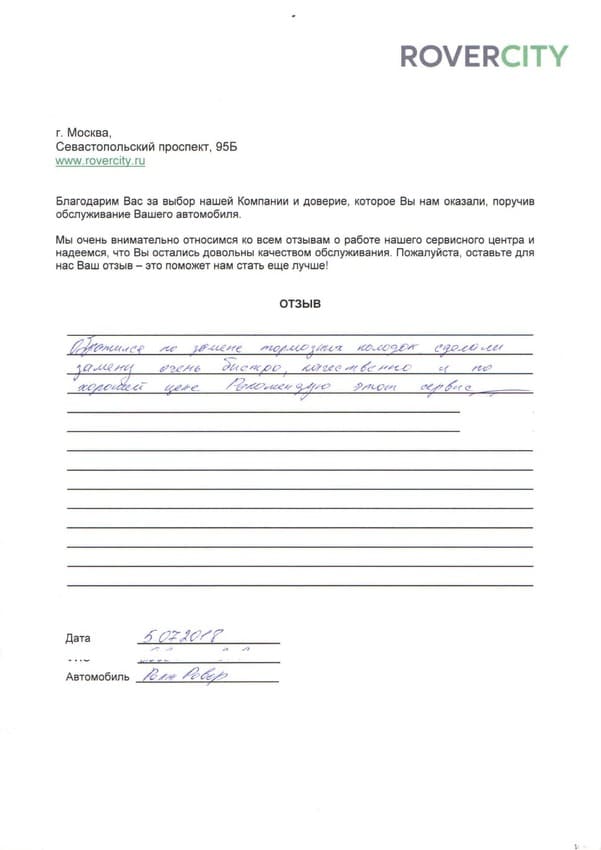 ROVERCITY
г. Москва,
Севастопольский проспект, 95Б
www.rovercity.ru
Благодарим Вас за выбор нашей Компании и доверие, которое Вы нам оказали, поручив
обслуживание Вашего автомобиля.
Мы очень внимательно относимся ко всем отзывам о работе нашего сервисного центра и
надеемся, что Вы остались довольны качеством обслуживания. Пожалуйста, оставьте для
нас Ваш отзыв – это поможет нам стать еще лучше!
ОТЗЫВ
Обратился по замене тормозных колодок сделали
замену очень быстро, качественно и по
хорошей цене Рекомендую этот сервис
Дата 5 07 2018
Автомобиль Ровер